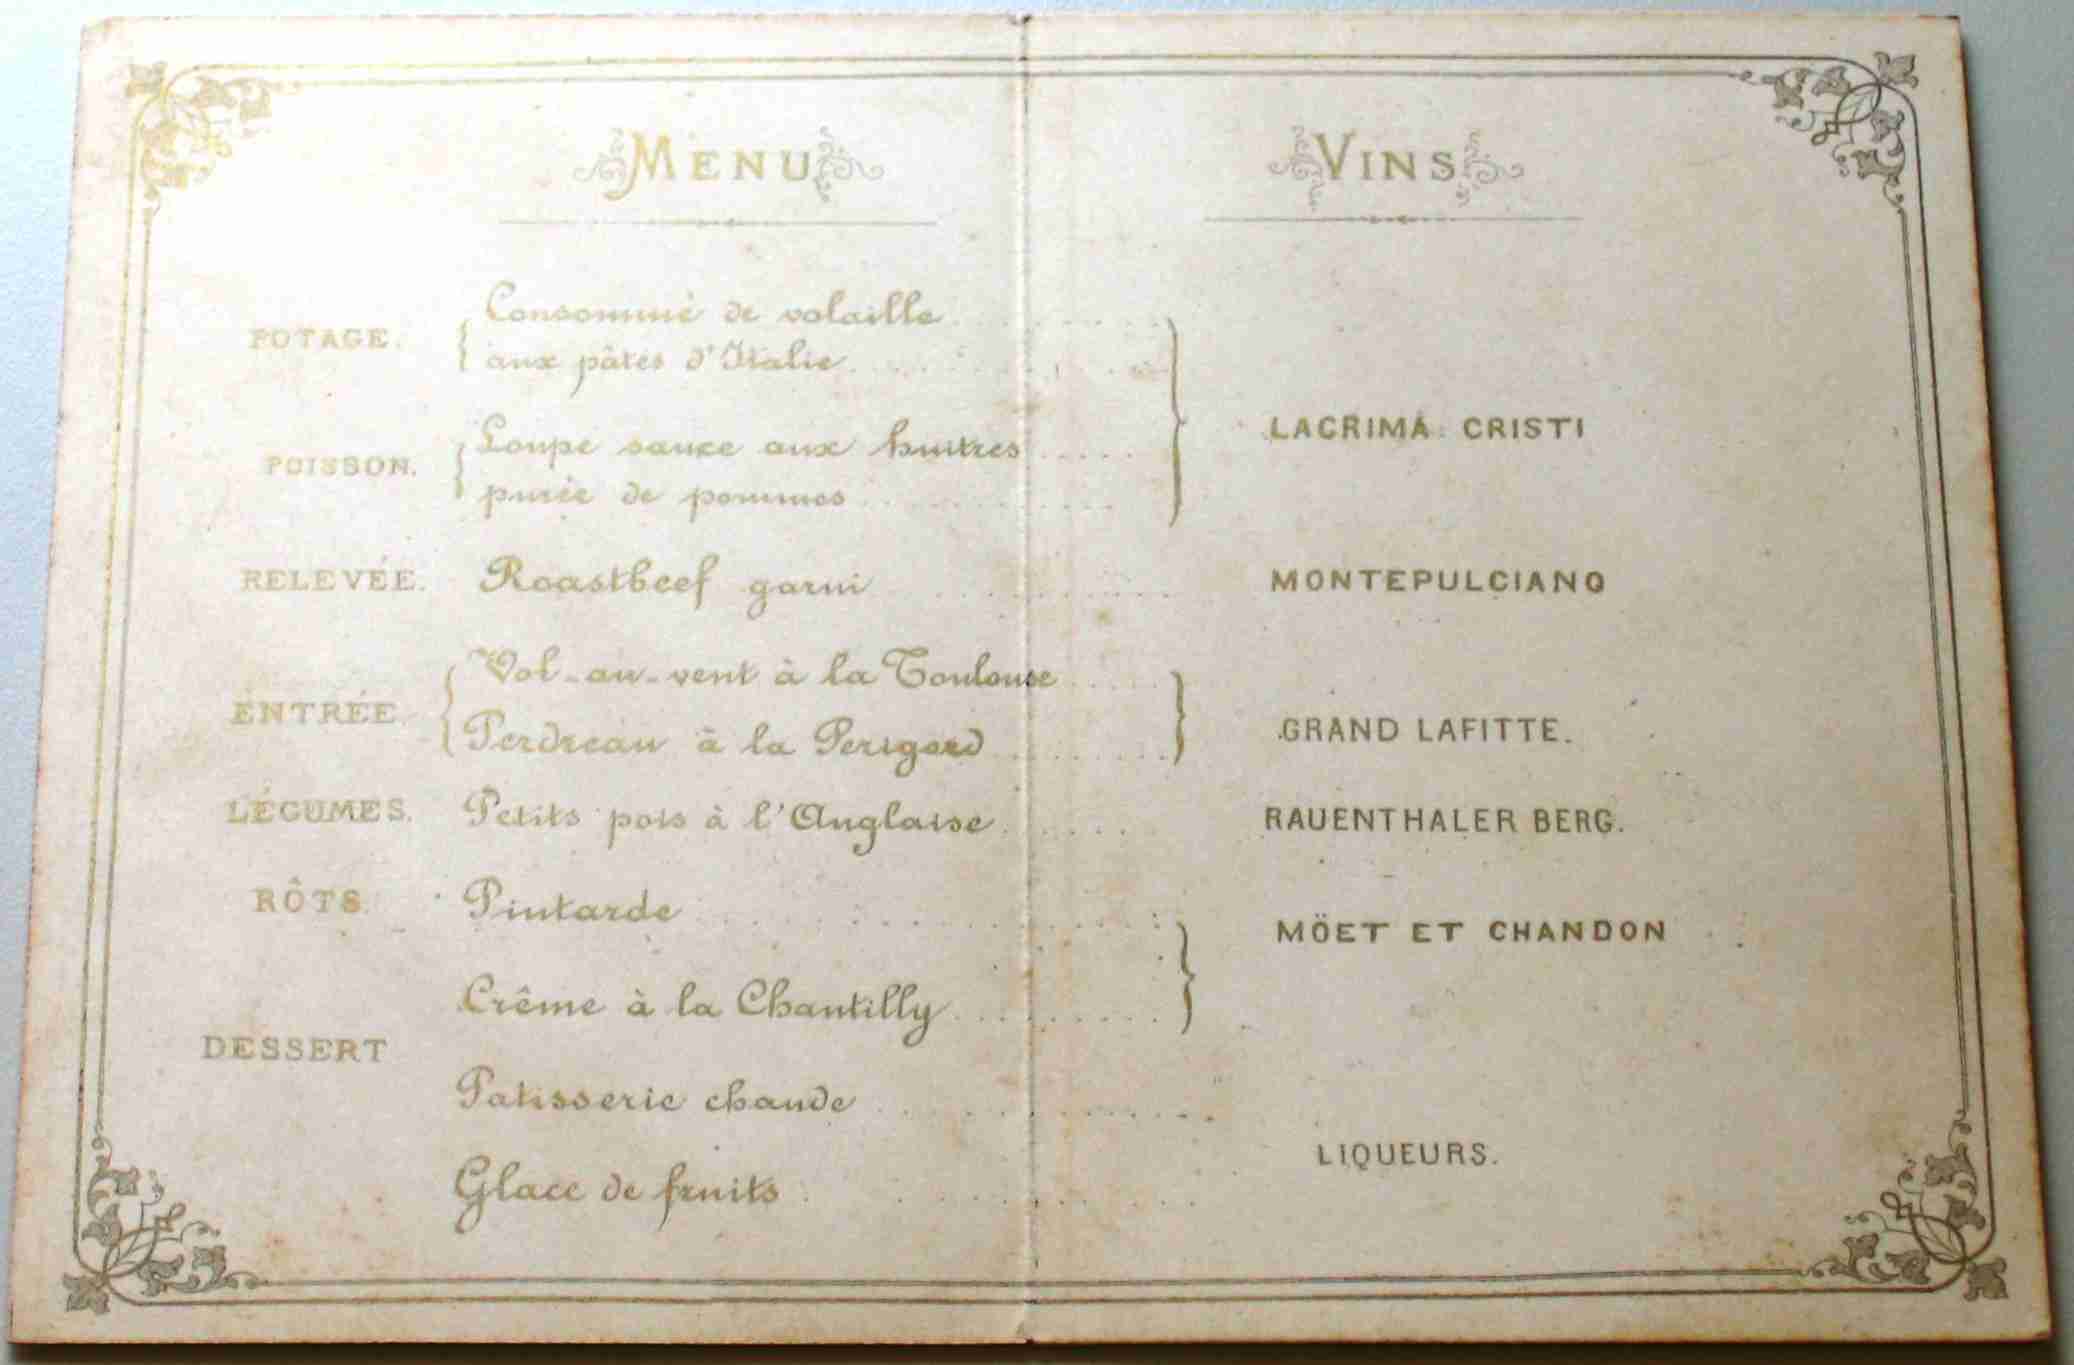 MENU
POTAGE.
Consommé de volaille
aux pâtes d'Italie
POISSON.
Loupe sauce aux huitres
purée de pommes
RELEVÉE.
Roastbeef garni
ENTRÉE
Vol-au-vent à la Toulouse
Perdreau à la Perigord
LÉGUMES.
Petits pois à l'Anglaise
RÔTS.
Pintarde
DESSERT
Crême à la Chantilly
Patisserie chaude
Glace de fruits
VINS
LACRIMA CRISTI
MONTEPULCIANO
GRAND LAFITTE.
RAUENTHALER BERG.
MÖET ET CHANDON
LIQUEURS.